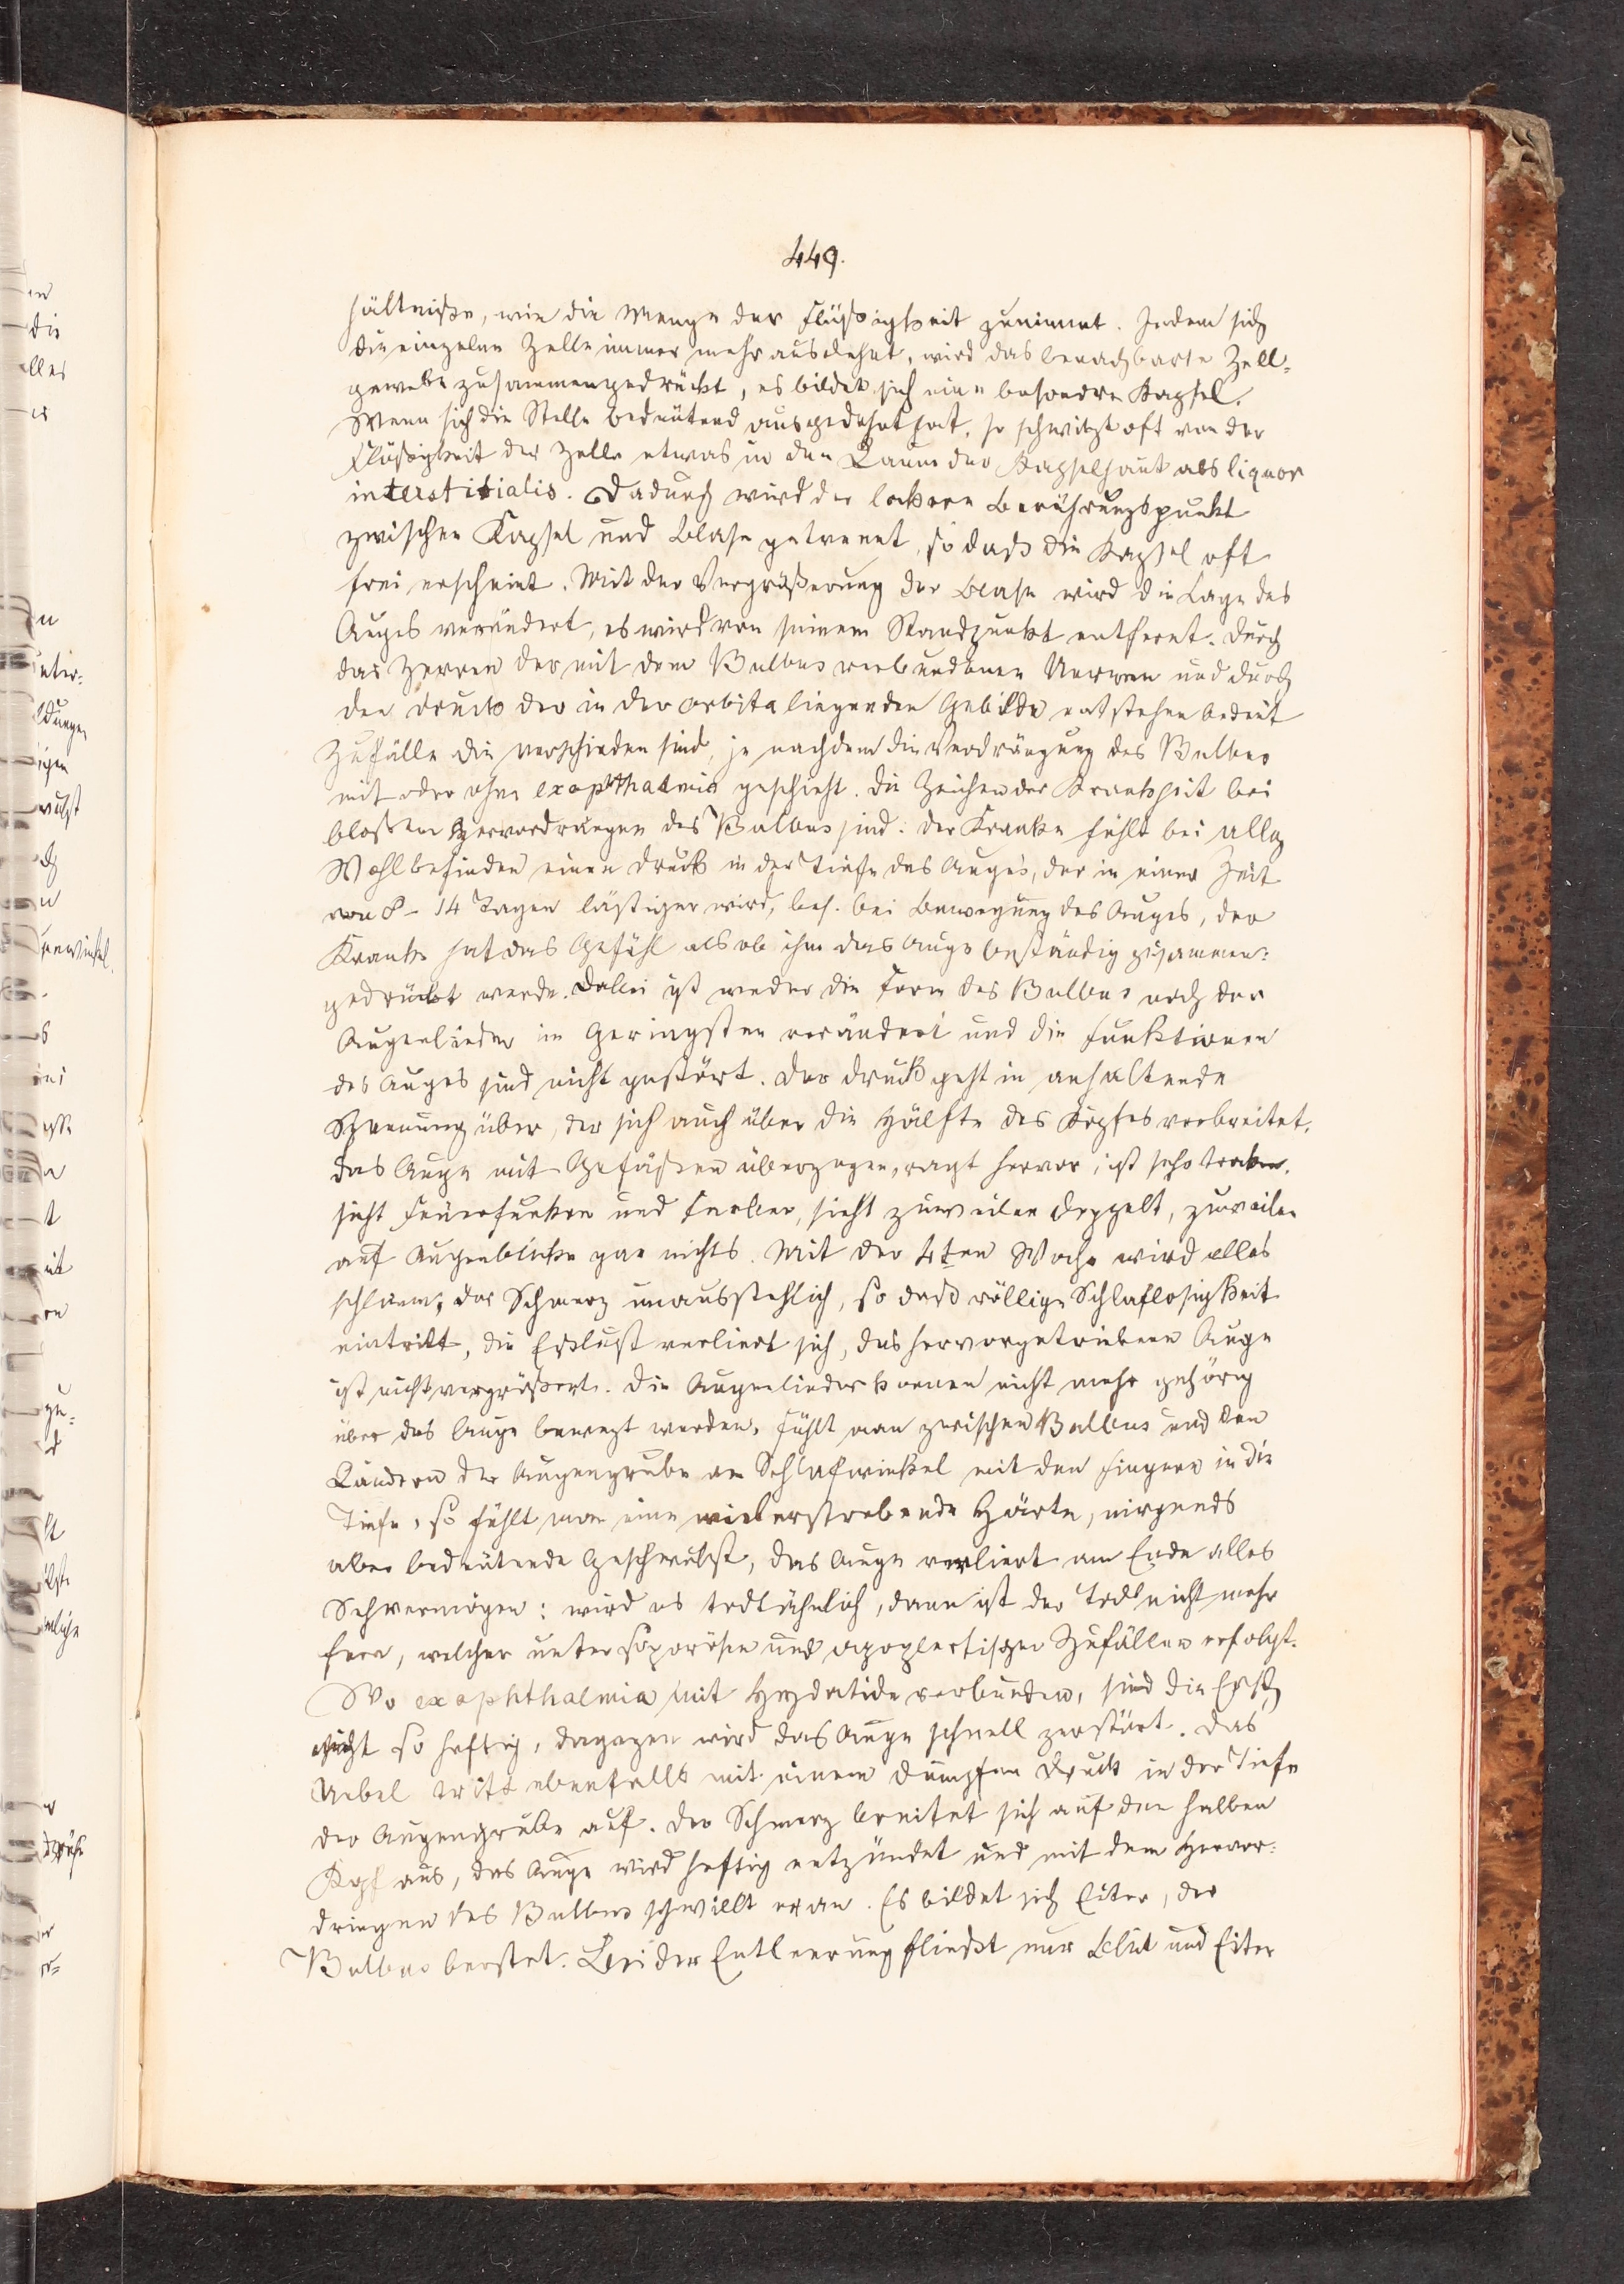 449.
hältniße, wie die Menge der Flüßigkeit zunimmt. Indem sich
die einzelne Zelle immer mehr ausdehnt, wird das benachbarte Zell-
gewebe zusammengedrückt, es bildet sich eine besondre Kapsel.
Wenn sich die Stelle bedeutend ausgedehnt hat, so schwitzt oft von der
Flüßigkeit der Zelle etwas in den Raum der Kapselhaut als liquor
interstitialis. Dadurch wird der lockere Berührungspunkt
zwischen Kapsel und Blase getrennt, so daß die Kapsel oft
frei erscheint. Mit der Vergrößerung der Blase wird die Lage des
Auges verändert, es wird von seinem Standpunkt entfernt. Durch
das Zerren der mit dem Bulbus verbundenen Nerven und durch
den Druck der in der orbita liegenden Gebilde entstehen bedeut
Zufälle die verschieden sind, je nachdem die Verdrängung des Bulbus
mit oder ohne exophthalmia geschieht. Die Zeichen der Krankheit bei
bloßem Hervordrängen des Bulbus sind: der Kranke fühlt bei allem
Wohlbefinden einen Druck in der Tiefe des Auges, der in einer Zeit
von 8 - 14 Tagen lästiger wird, bes. bei Bewegung des Auges, der
Kranke hat das Gefühl als ob ihm das Auge beständig zusammen-
gedrückt werde. Dabei ist weder die Form des Bulbus noch der
Augenlieder im Geringsten verändert und die Funktionen
des Auges sind nicht gestört. Der Druck geht in anhaltende
Spannung über, der sich auch über die Hälfte des Kopfes verbreitet.
das Auge mit Gefäßen überzogen, ragt hervor, ist sehr trocken.
sieht Feuerfunken und Farben, sieht zuweilen doppelt, zuweilen
auf Augenblicke gar nichts. Mit der 4ten Woche wird alles
schlimmer, der Schmerz unausstehlich, so daß völlige Schlaflosigkeit
eintritt, die Eßlust verliert sich, das hervorgetriebene Auge
ist nicht vergrößert. Die Augenlieder können nicht mehr gehörig
über das Auge bewegt werden. Fühlt man zwischen Bulbus und den
Rändern der Augengrube am Schlafwinkel mit den Fingern in die
Tiefe, so fühlt man eine widerstrebende Härte, nirgends
aber bedeutende Geschwulst, das Auge verliert am Ende alles
Sehvermögen: wird es todtähnlich, dann ist der Tod nicht mehr
fern, welcher unter soporösen und apoplectischen Zufällen erfolgt.
Wo exophthalmia mit Hydatide verbunden, sind die
nicht so heftig, dagegen wird das Auge schnell zerstört. Das
Uebel tritt ebenfalls mit einem dumpfen Druck in der Tiefe
der Augengrube auf. Der Schmerz breitet sich auf den halben
Kopf aus, das Auge wird heftig entzündet und mit dem Hervor-
dringen des Bulbus schwillt er an. Es bildet sich Eiter, der
Bulbus berstet. Bei der Entleerung fließt nur Blut und Eiter